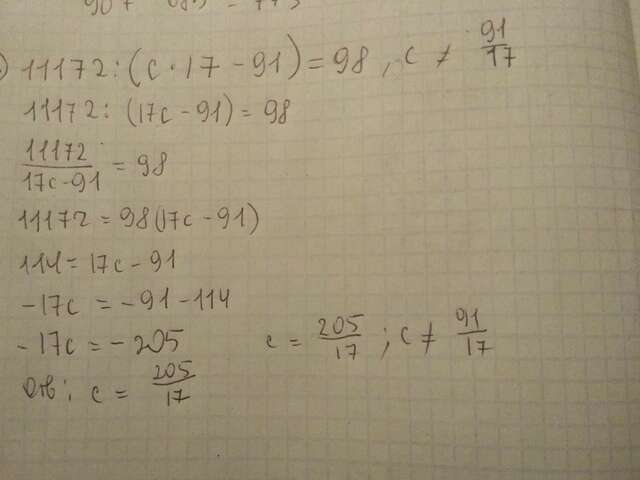 11172:(c·17-91)=98, c≠91/17
11172:(17c-91)=98
11172/17c-91=98
11172=98(17c-91)
114=17c-91
-17c=-91-114
-17c=-205 c=205/17; c≠91/17
Отв: c=205/17